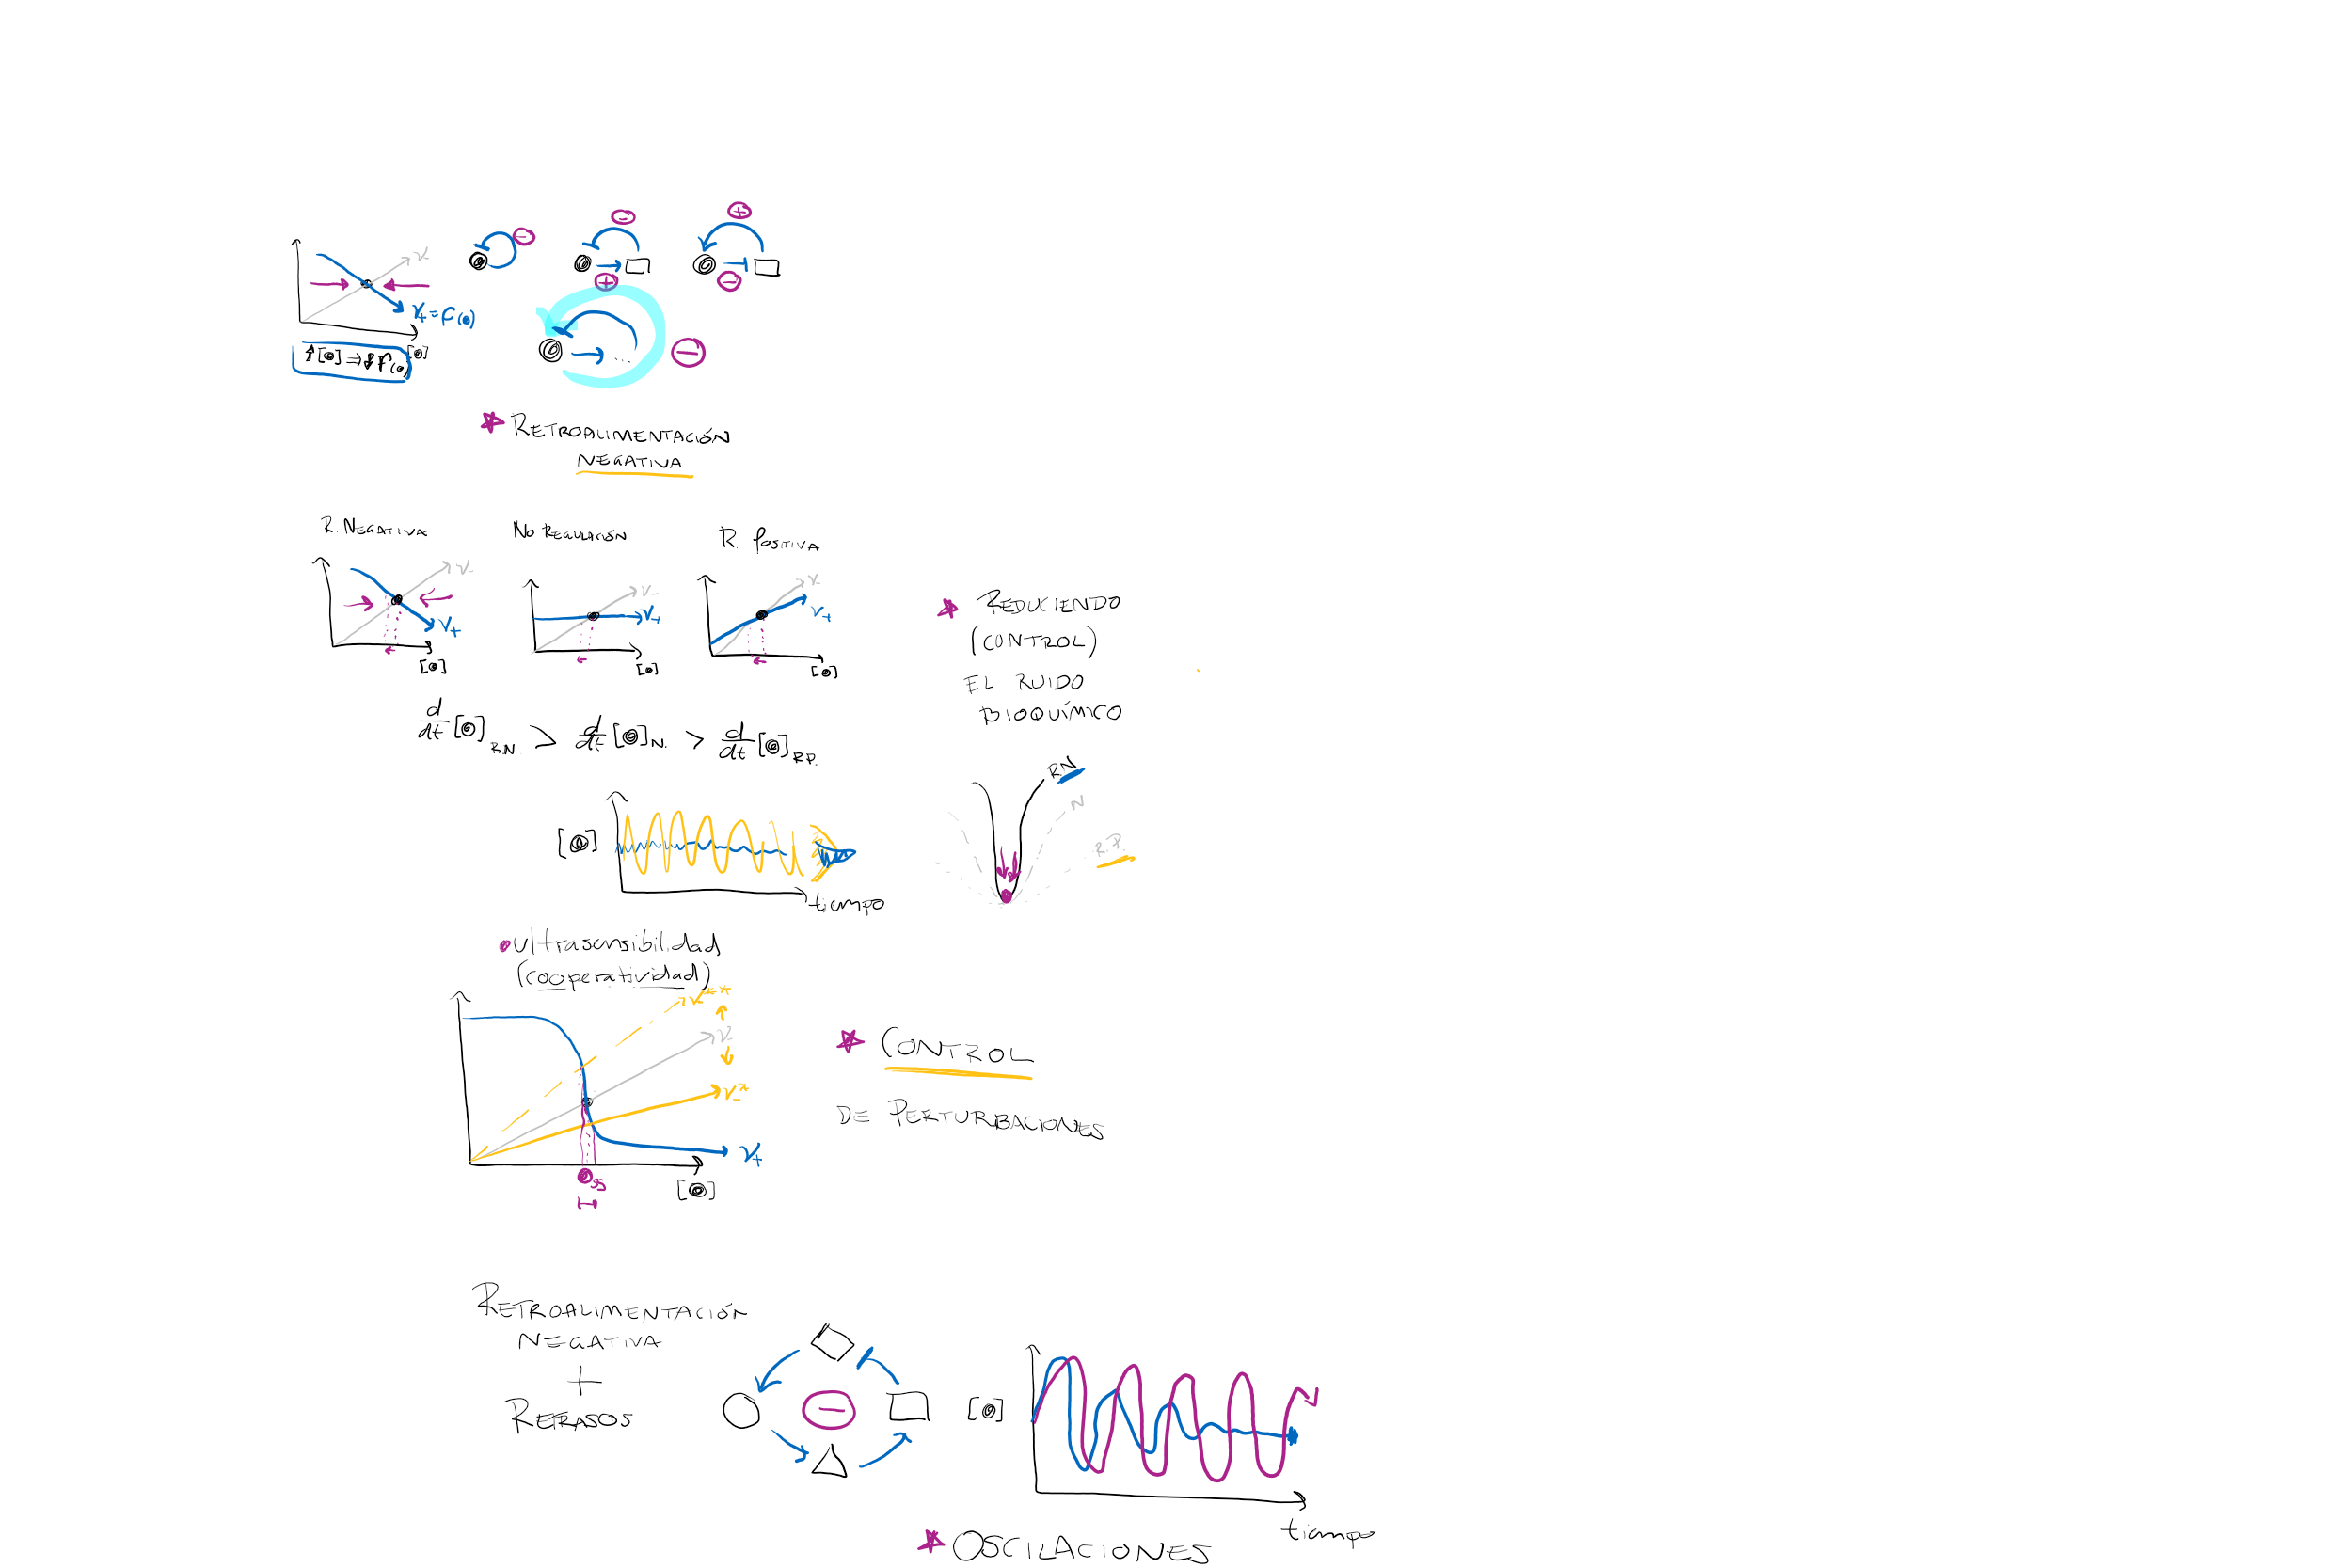 V-
V+ = F(o)
[o]
↑[o] ⇒ ↓F(o)
-
-
+
+
-
...
-
RETROALIMENTACIÓN
NEGATIVA
R. NEGATIVA
V-
V+
[o]
NO REGULACIÓN
V-
V+
[o]
R. POSITIVA
V-
V+
[o]
d/dt [o] R.N. > d/dt [o] N. > d/dt [o] R.P.
REDUCIENDO
(CONTROL)
EL RUIDO
BIOQUÍMICO
RN
N
R.P.
[o]
tiempo
ultrasensibilidad
(cooperatividad)
V-**
V-
V-*
V+
ss
[o]
CONTROL
DE PERTURBACIONES
RETROALIMENTACIÓN
NEGATIVA
+
RETRASOS
-
[o]
tiempo
OSCILACIONES